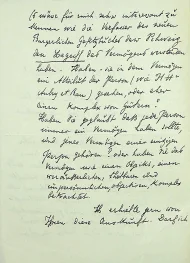 Es wäre für mich sehr interessant zu
wie die Verfasser des neuen
Bürgerlichen Gesetzbuches der Schweiz
den Begriff des Vermögens verstanden
haben. Haben sie in dem Vermögen
ein Attribut der Person (wie
Aubry et Rau) gesehen, oder eher
einen Komplex von Gütern?
Haben sie geglaubt dass jede Person
immer ein Vermögen haben sollte,
und jenes Vermögen einer einzigen
Person gehören? oder haben sie das
Vermögen wie einen
veräusserlichen, teilbaren und
unpersönlichen, objektiven Komplex
betrachtet
Ich erhielte gern von
Ihnen diese Auskunft.